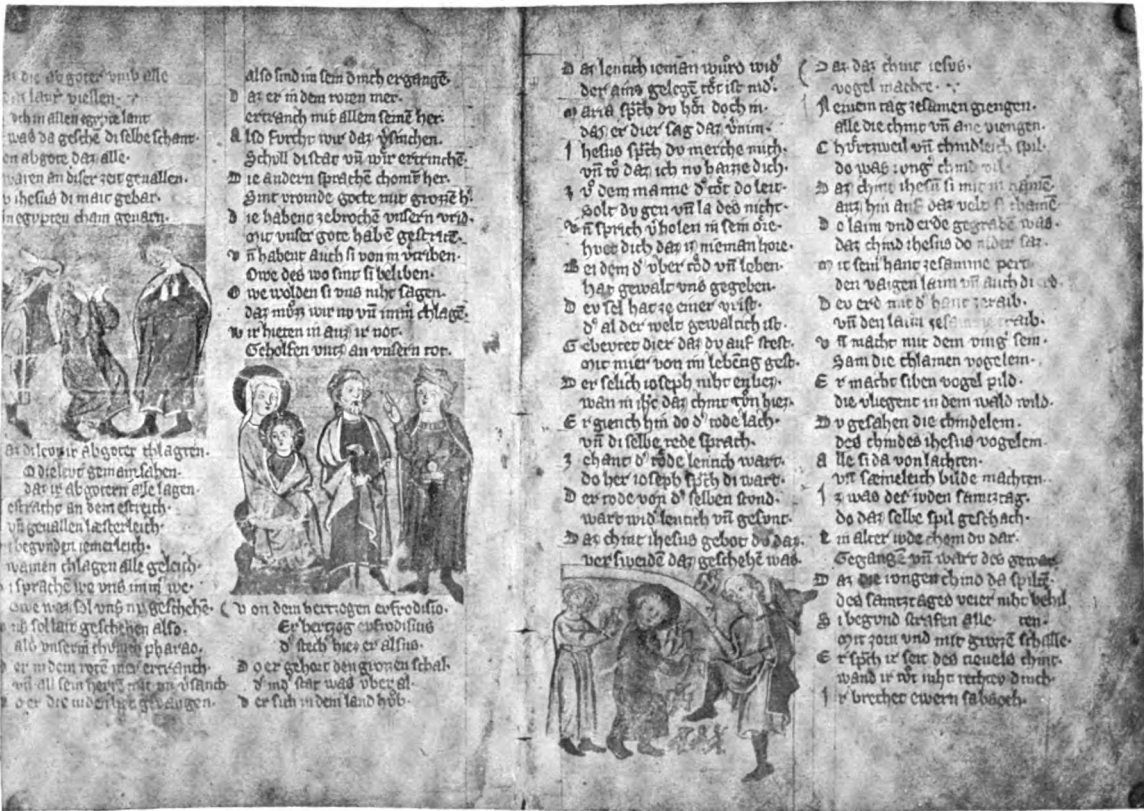 die abgoter vmb alle
viellen.
ich in allen egypte lant
was da gesche di selbe schant.
en abgote daz alle.
waren an diser zeit geuallen.
ihesus di mait gebar.
in egypten cham geuarn.
di lewt ir abgoter chlagten.
O die levt gemain sahen.
daz ir abgotern alle lagen.
estracht an dem estreich.
vn̄ geuallen læsterleich.
begunden iemerleich.
wainen chlagen alle geleich.
sprachē we vns im̄ we.
Owe waz sol vns nv geschehē.
sol lait geschehen also.
als vnserm chvnich pharao.
er in dem rotē mer ertranch.
vn̄ all sein
o er die iuden
also sind im sein dinch ergangē.
D az er in dem roten mer.
ertranch mit allem seinē her.
A lso furcht wir daz
Scholl di stat vn̄ wir ertrinchē.
D ie andern sprachē chomē her.
Sint vromde gote mit grozzē
D ie habent zebrochē vnsern vrid.
Mit vnser gote habē gestritē.
V n̄ habent auch si von in vtriben.
Owe des wo sint si beliben.
O we wolden si vns niht sagen.
daz mvzz wir nv vn̄ im̄ chlagē.
W ir hieten in anz ir not.
Geholfen vntz an vnsern tot.
V on dem hertzogen evfrodisio.
Er hertzog eufrodisius
d' stech hiez er alsus.
D o er gehort den grozzen schal.
d' in d' stat was vber al.
V er sich in dem land hvb.
D az lentich ieman wurd wid'
der ains gelegē tot ist nid'.
M aria spch dv hor doch in.
daz er dier sag daz vnim.
I hesus spch dv merche mich.
vn̄ to daz ich nv haizze dich.
Z v dem manne d' tot do leit.
Solt dv gen vn̄ la des niht.
V n̄ sprich vholen in sein ore.
huet dich daz iz nieman hore.
B ei dem d' vber tod vn̄ leben.
hat gewalt vns gegeben.
D ev sel hat ze einer vrist.
d' al der welt gewaltich ist.
G ebevtet dier daz dv auf stest.
Mit mier von im lebēng gest.
D er selich ioseph niht enliez.
wan in daz chint tvn hiez.
E r giench hin do d' tode lach.
vn̄ di selbe rede sprach.
Z ehant d' tode lentich wart.
do her ioseph spch di wart.
D er tode von d' selben stvnd.
wart wid' lentich vn̄ gesvnt.
D az chint ihesus gebot do daz.
versweidē daz geschehē was.
D az daz chint iesus.
vogel machte.
A n einem tag zesamen giengen.
alle die chint vn̄ ane viengen.
C hvrtzweil vn̄ chindleich spil.
do was
D az chint ihesu si mit in namē.
anz hin auf daz velt si chamē
D o laim vnd erde gegrabē was.
daz chind ihesus do nider saz.
M it sein hant zesamme
den vaizen laim vn̄ auch di
D ev erd mit d' hant zeraib.
vn̄ den laim
V n̄ macht mit dem ving' sein.
Sam die chlainen vogelein.
E r macht siben vogel pild.
die vliegent in dem wald wild.
D v gesahen die chindelein.
des chindes ihesus vogelein.
A lle si da von lachten.
vn̄ sæmeleich bilde machten.
I z was der ivden samtztag.
do daz selbe spil geschach.
E in alter iude chom dv dar.
Gegangē vn̄ wart des gewar.
D az die iungen chind da spiltē.
des samtztages veier niht behil
S i begund strafen alle
Mit zorn vnd mit grozzē schalle.
E r spch ir seit des tieuels chint.
wand ir tot niht rechter dinch.
I r brechet ewern sabaoth.